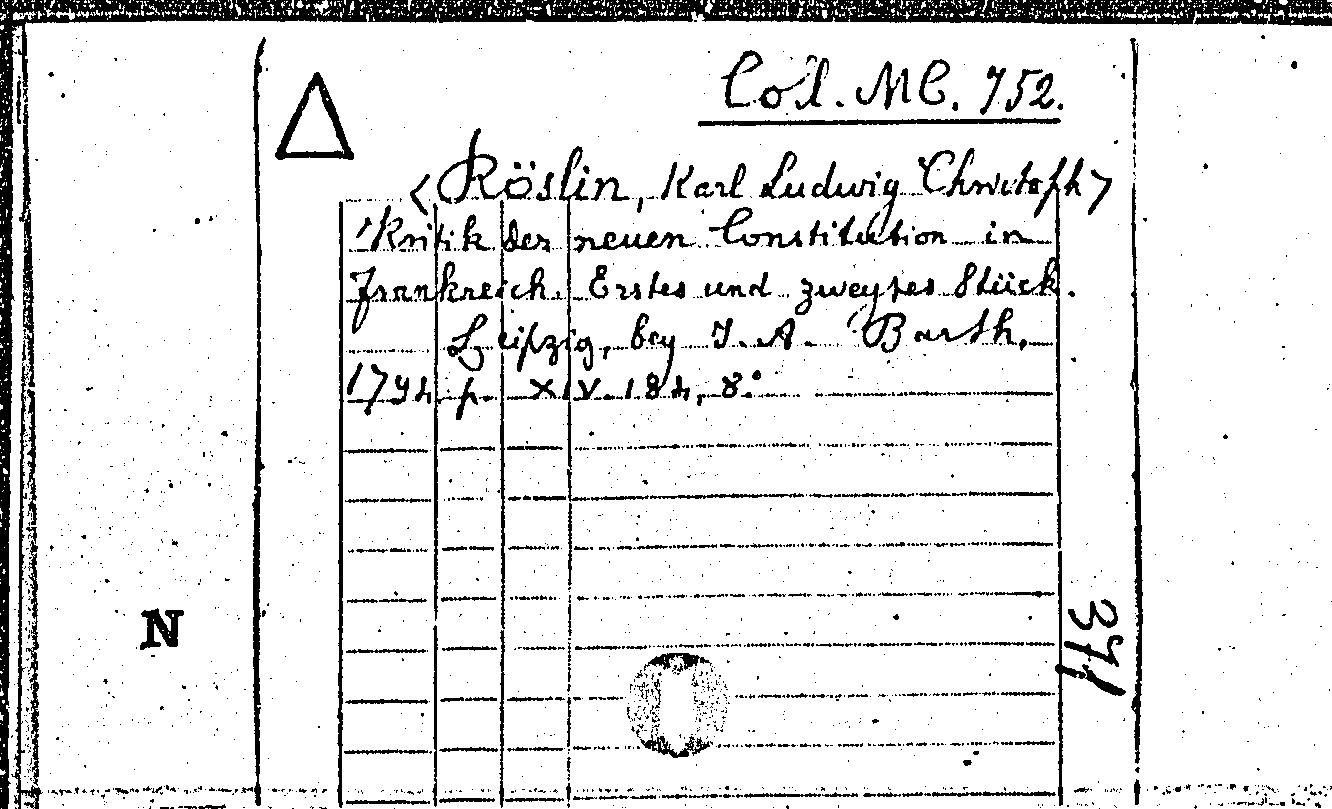 Col. MC. 752.
<Röslin, Karl Ludwig Christoph>
Kritik der neuen Constitution in
Frankreich. Erstes und zweytes Stück.
Leipzig, bey J. A. Barth,
1794 p. XIV. 184, 8°.
N
371